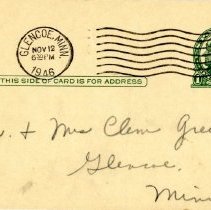 GLENCOE, MINN.
NOV 12
6 30 PM
1946
THIS SIDE OF CARD IS FOR ADDRESS
. & Mrs Clem Gree
Glencoe
Minn